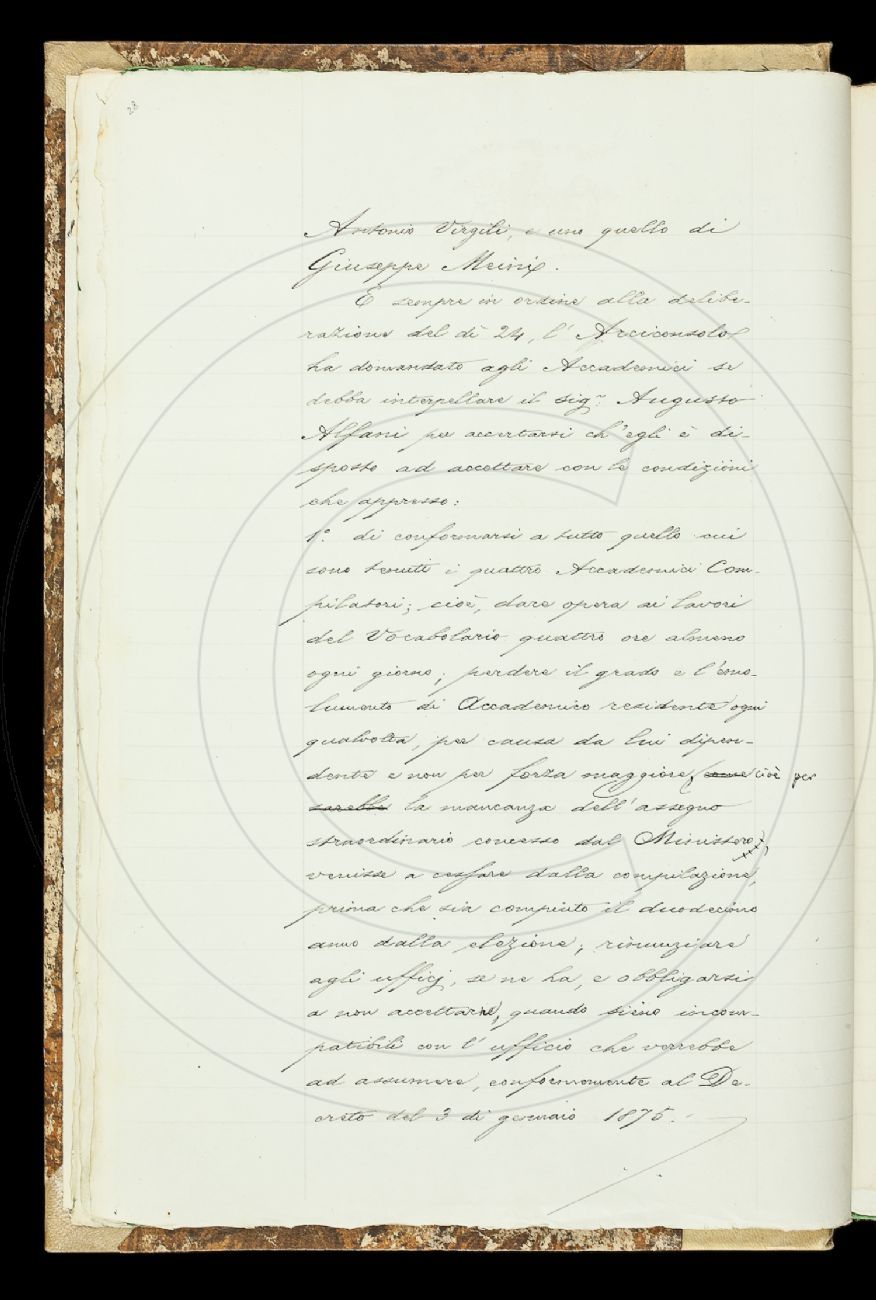 28
Antonio Virgili, e uno quello di
Giuseppe Meini.
E sempre in ordine alla delibe-
razione del dì 24, l'Arciconsolo
ha domandato agli Accademici se
debba interpellare il sigr. Augusto
Alfani per accertarsi ch'egli è di-
sposto ad accettare con le condizioni
che appresso:
1º. di conformarsi a tutto quello cui
sono tenuti i quattro Accademici Com-
pilatori; cioè, dare opera ai lavori
del Vocabolario quattro ore almeno
ogni giorno; perdere il grado e l'emo-
lumento di Accademico residente ogni
qualvolta, per causa da lui dipen-
dente e non per forza maggiore, come cioè per
sarebbe la mancanza dell'assegno
straordinario concesso dal Ministero,
venisse a cessare dalla compilazione,
prima che sia compiuto il duodecimo
anno dalla elezione; rinunziare
agli ufficj, se ne ha, e obbligarsi
a non accettarne, quando sieno incom-
patibili con l'ufficio che verrebbe
ad assumere, conformemente al De-
creto del 3 di gennaio 1875.